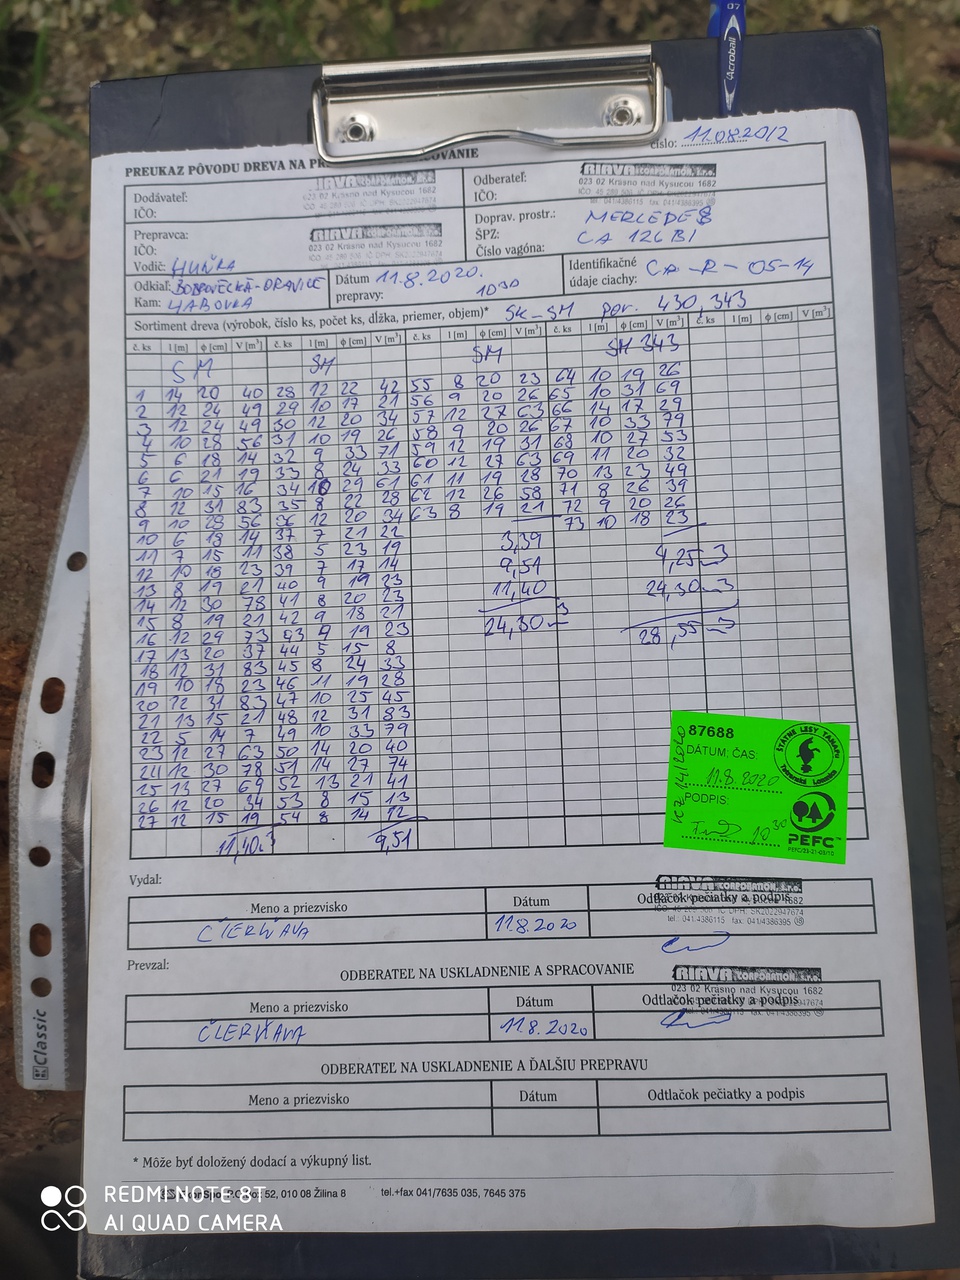 07
Acroball
číslo: 11.08.2012
PREUKAZ PÔVODU DREVA NA
Dodávateľ:
IČO:
RIAVA CORPORATION, s.r.o.
023 02 Krásno nad Kysucou 1682
Odberateľ:
IČO:
RIAVA CORPORATION, s.r.o.
023 02 Krásno nad Kysucou 1682
tel. 041/4386115 fax: 041/4386395
Prepravca:
IČO:
RIAVA CORPORATION, s.r.o.
023 02 Krásno nad Kysucou 1682
Vodič: HUŇKA
Doprav. prostr.: MERCEDES
ŠPZ: CA 126BI
Číslo vagóna:
Odkiaľ: BOBROVECKÁ-ORAVICE
Kam: HABOVKA
Dátum 11.8.2020.
prepravy: 10 30
Identifikačné
údaje ciachy: CA-R-05-14
Sortiment dreva (výrobok, číslo ks, počet ks, dĺžka, priemer, objem)* SK-SM por. 430,343
č. ks l [m] ϕ [cm] V [m³] č. ks l [m] ϕ [cm] V [m³] č. ks l [m] ϕ [cm] V [m³] č. ks l [m] ϕ [cm] V [m³] č. ks l [m] ϕ [cm] V [m³]
SM SM SM SM 343
1 14 20 40 28 12 22 42 55 8 20 23 64 10 19 26
2 12 24 49 29 10 17 21 56 9 20 26 65 10 31 69
3 12 24 49 30 12 20 34 57 12 27 63 66 14 17 29
4 10 28 56 31 10 19 26 58 9 20 26 67 10 33 79
5 6 18 14 32 9 33 71 59 12 19 31 68 10 27 53
6 6 21 19 33 8 24 33 60 12 27 63 69 11 20 32
7 10 15 16 34 10 29 61 61 11 19 28 70 13 23 49
8 12 31 83 35 8 22 28 62 12 26 58 71 8 26 39
9 10 28 56 36 12 20 34 63 8 19 21 72 9 20 26
10 6 18 14 37 7 21 22 73 10 18 23
11 7 15 11 38 5 23 19 3,39
12 10 18 23 39 7 17 14 9,51 4,25 m3
13 8 19 21 40 9 19 23 11,40 24,30 m3
14 12 30 78 41 8 20 23
15 8 19 21 42 9 18 21 24,30 m3 28,55 m3
16 12 29 73 43 9 19 23
17 13 20 37 44 5 15 8
18 12 31 83 45 8 24 33
19 10 18 23 46 11 19 28
20 12 31 83 47 10 25 45
21 13 15 21 48 12 31 83
22 5 14 7 49 10 33 79
23 12 27 63 50 14 20 40
24 12 30 78 51 14 27 74
25 13 27 69 52 13 21 41
26 12 20 34 53 8 15 13
27 12 15 19 54 8 14 12
11,40 m3 9,51
87688
DÁTUM, ČAS:
11.8.2020
PODPIS:
10 30
14/2020
ŠTÁTNE LESY TANAPU
Tatranská Lomnica
PEFC
Vydal:
Meno a priezvisko Dátum Odtlačok pečiatky a podpis
ČIERŇAVA 11.8.2020
RIAVA CORPORATION, s.r.o.
023 02 Krásno nad Kysucou 1682
IČ DPH: SK2022947674
tel. 041/4386115 fax: 041/4386395
Prevzal:
ODBERATEĽ NA USKLADNENIE A SPRACOVANIE
Meno a priezvisko Dátum Odtlačok pečiatky a podpis
ČIERŇAVA 11.8.2020
RIAVA CORPORATION, s.r.o.
023 02 Krásno nad Kysucou 1682
ODBERATEĽ NA USKLADNENIE A ĎALŠIU PREPRAVU
Meno a priezvisko Dátum Odtlačok pečiatky a podpis
* Môže byť doložený dodací a výkupný list.
52, 010 08 Žilina 8 tel.+fax 041/7635 035, 7645 375
Classic
REDMI NOTE 8T
AI QUAD CAMERA